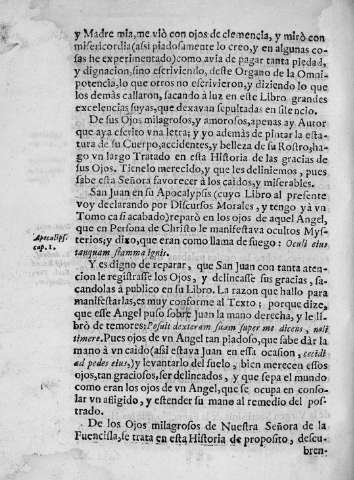 y Madre mia, me viò con ojos de clemencia, y mirò con
misericordia (assi piadosamente lo creo, y en algunas co-
sas he experimentado) como avia de pagar tanta piedad,
y dignacion, sino escriviendo, deste Organo de la Omni-
potencia, lo que otros no escrivieron, y diziendo lo que
los demàs callaron, sacando à luz en este Libro grandes
excelencias suyas, que dexavan sepultadas en silencio.
De sus Ojos milagrosos, y amorosos, apenas ay Autor
que aya escrito vna letra; y yo además de pintar la esta-
tura de su Cuerpo, accidentes, y belleza de su Rostro; ha-
go vn largo Tratado en esta Historia de las gracias de
sus Ojos. Tienelo merecido, y que les deliniemos, pues
sabe esta Señora favorecer à los caidos, y miserables.
San Juan en su Apocalypsis (cuyo Libro al presente
voy declarando por Discursos Morales, y tengo yà vn
Tomo casi acabado) reparò en los ojos de aquel Angel,
que en Persona de Christo le manifestava ocultos Mys-
Apocalips.
cap. 1.
terios; y dixo, que eran como llama de fuego: Oculi eius
tanquam flamma ignis.
Y es digno de reparar, que San Juan con tanta aten-
cion le registrasse los Ojos, y delineasse sus gracias, sa-
candolas à publico en su Libro. La razon que hallo para
manifestarlas, es muy conforme al Texto; porque dize,
que esse Angel puso sobre Juan la mano derecha, y le li-
brò de temores; Posuit dexteram suam super me dicens, noli
timere. Pues ojos de vn Angel tan piadoso, que sabe dàr la
mano à vn caido (assi estava Juan en essa ocasion, cecidi
ad pedes eius,) y levantarlo del suelo, bien merecen essos
ojos, tan graciosos, ser delineados, y que sepa el mundo
como eran los ojos de vn Angel, que se ocupa en conso-
lar vn afligido, y estender su mano al remedio del pos-
trado.
De los Ojos milagrosos de Nuestra Señora de la
Fuencisla, se trata en esta Historia de proposito, descu-
bren-